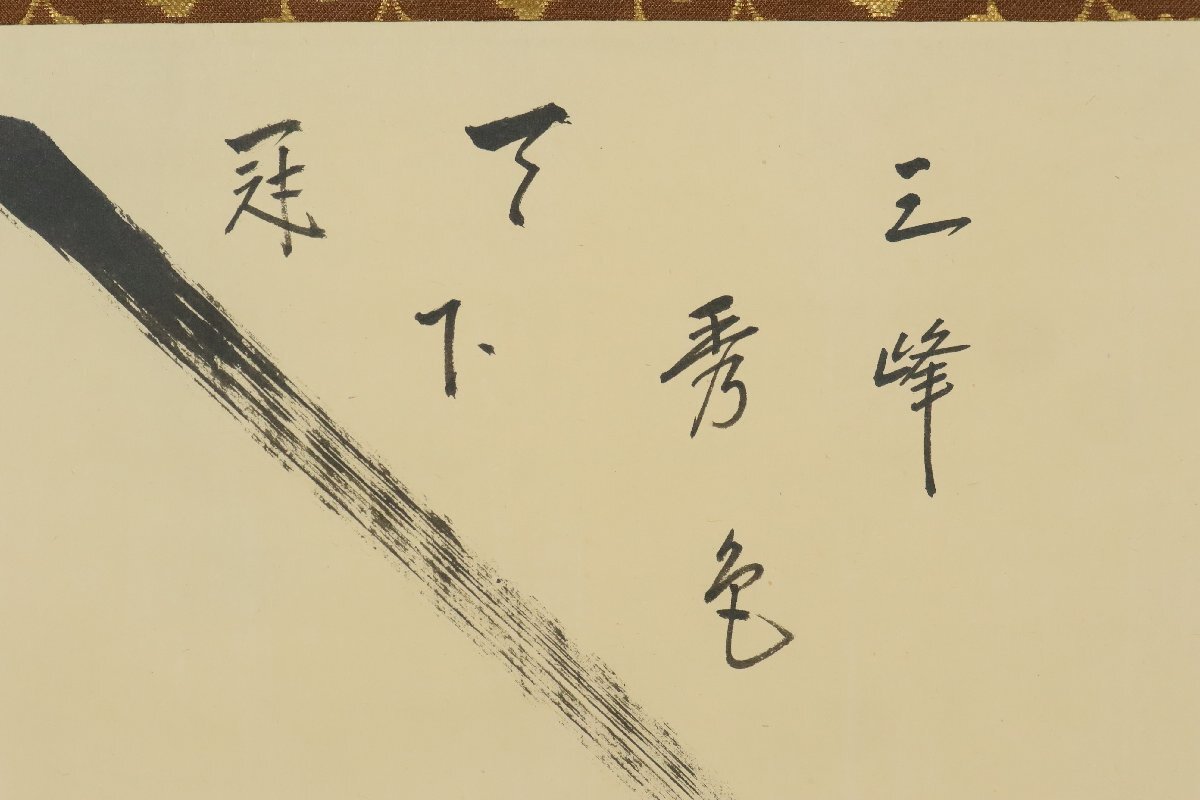 三峰
秀色
天下
冠